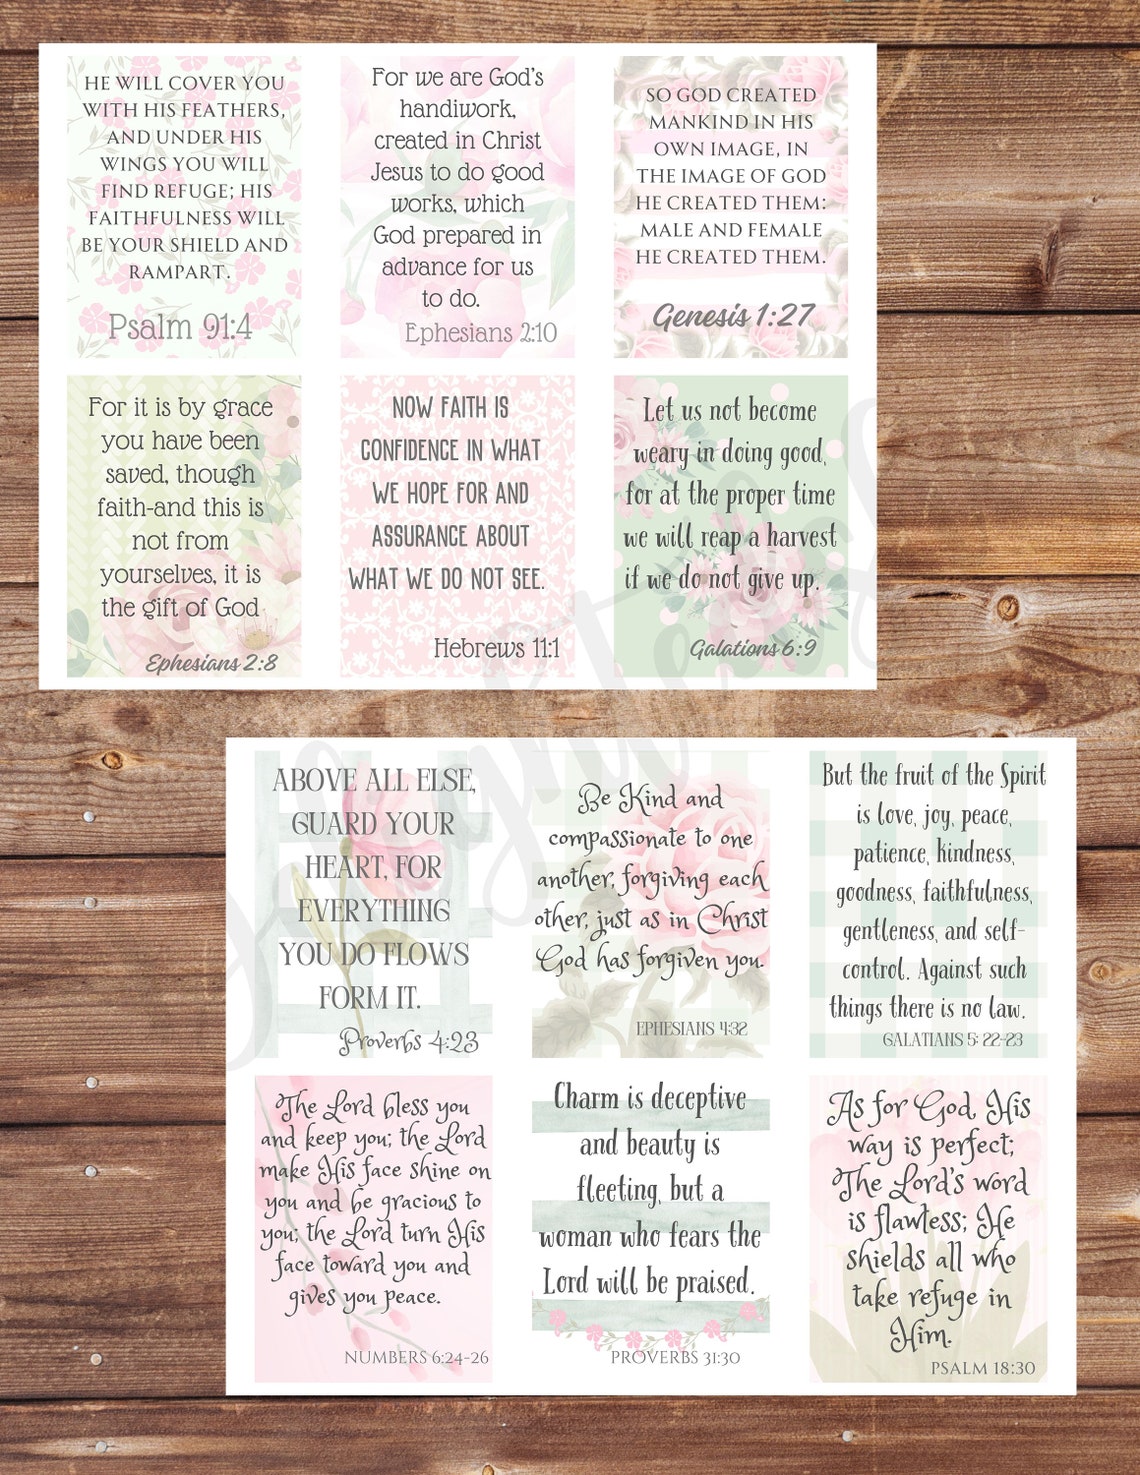 HE WILL COVER YOU
WITH HIS FEATHERS,
AND UNDER HIS
WINGS YOU WILL
FIND REFUGE; HIS
FAITHFULNESS WILL
BE YOUR SHIELD AND
RAMPART.
Psalm 91:4
For we are God's
handiwork,
created in Christ
Jesus to do good
works, which
God prepared in
advance for us
to do.
Ephesians 2:10
SO GOD CREATED
MANKIND IN HIS
OWN IMAGE, IN
THE IMAGE OF GOD
HE CREATED THEM:
MALE AND FEMALE
HE CREATED THEM.
Genesis 1:27
For it is by grace
you have been
saved, though
faith-and this is
not from
yourselves, it is
the gift of God
Ephesians 2:8
NOW FAITH IS
CONFIDENCE IN WHAT
WE HOPE FOR AND
ASSURANCE ABOUT
WHAT WE DO NOT SEE.
Hebrews 11:1
Let us not become
weary in doing good,
for at the proper time
we will reap a harvest
if we do not give up.
Galations 6:9
ABOVE ALL ELSE,
GUARD YOUR
HEART, FOR
EVERYTHING
YOU DO FLOWS
FORM IT.
Proverbs 4:23
Be Kind and
compassionate to one
another, forgiving each
other, just as in Christ
God has forgiven you.
EPHESIANS 4:32
But the fruit of the Spirit
is love, joy, peace,
patience, kindness,
goodness, faithfulness,
gentleness, and self-
control. Against such
things there is no law.
GALATIANS 5: 22-23
The Lord bless you
and keep you; the Lord
make His face shine on
you and be gracious to
you; the Lord turn His
face toward you and
gives you peace.
NUMBERS 6:24-26
Charm is deceptive
and beauty is
fleeting, but a
woman who fears the
Lord will be praised.
PROVERBS 31:30
As for God, His
way is perfect;
The Lord's word
is flawless; He
shields all who
take refuge in
Him.
PSALM 18:30